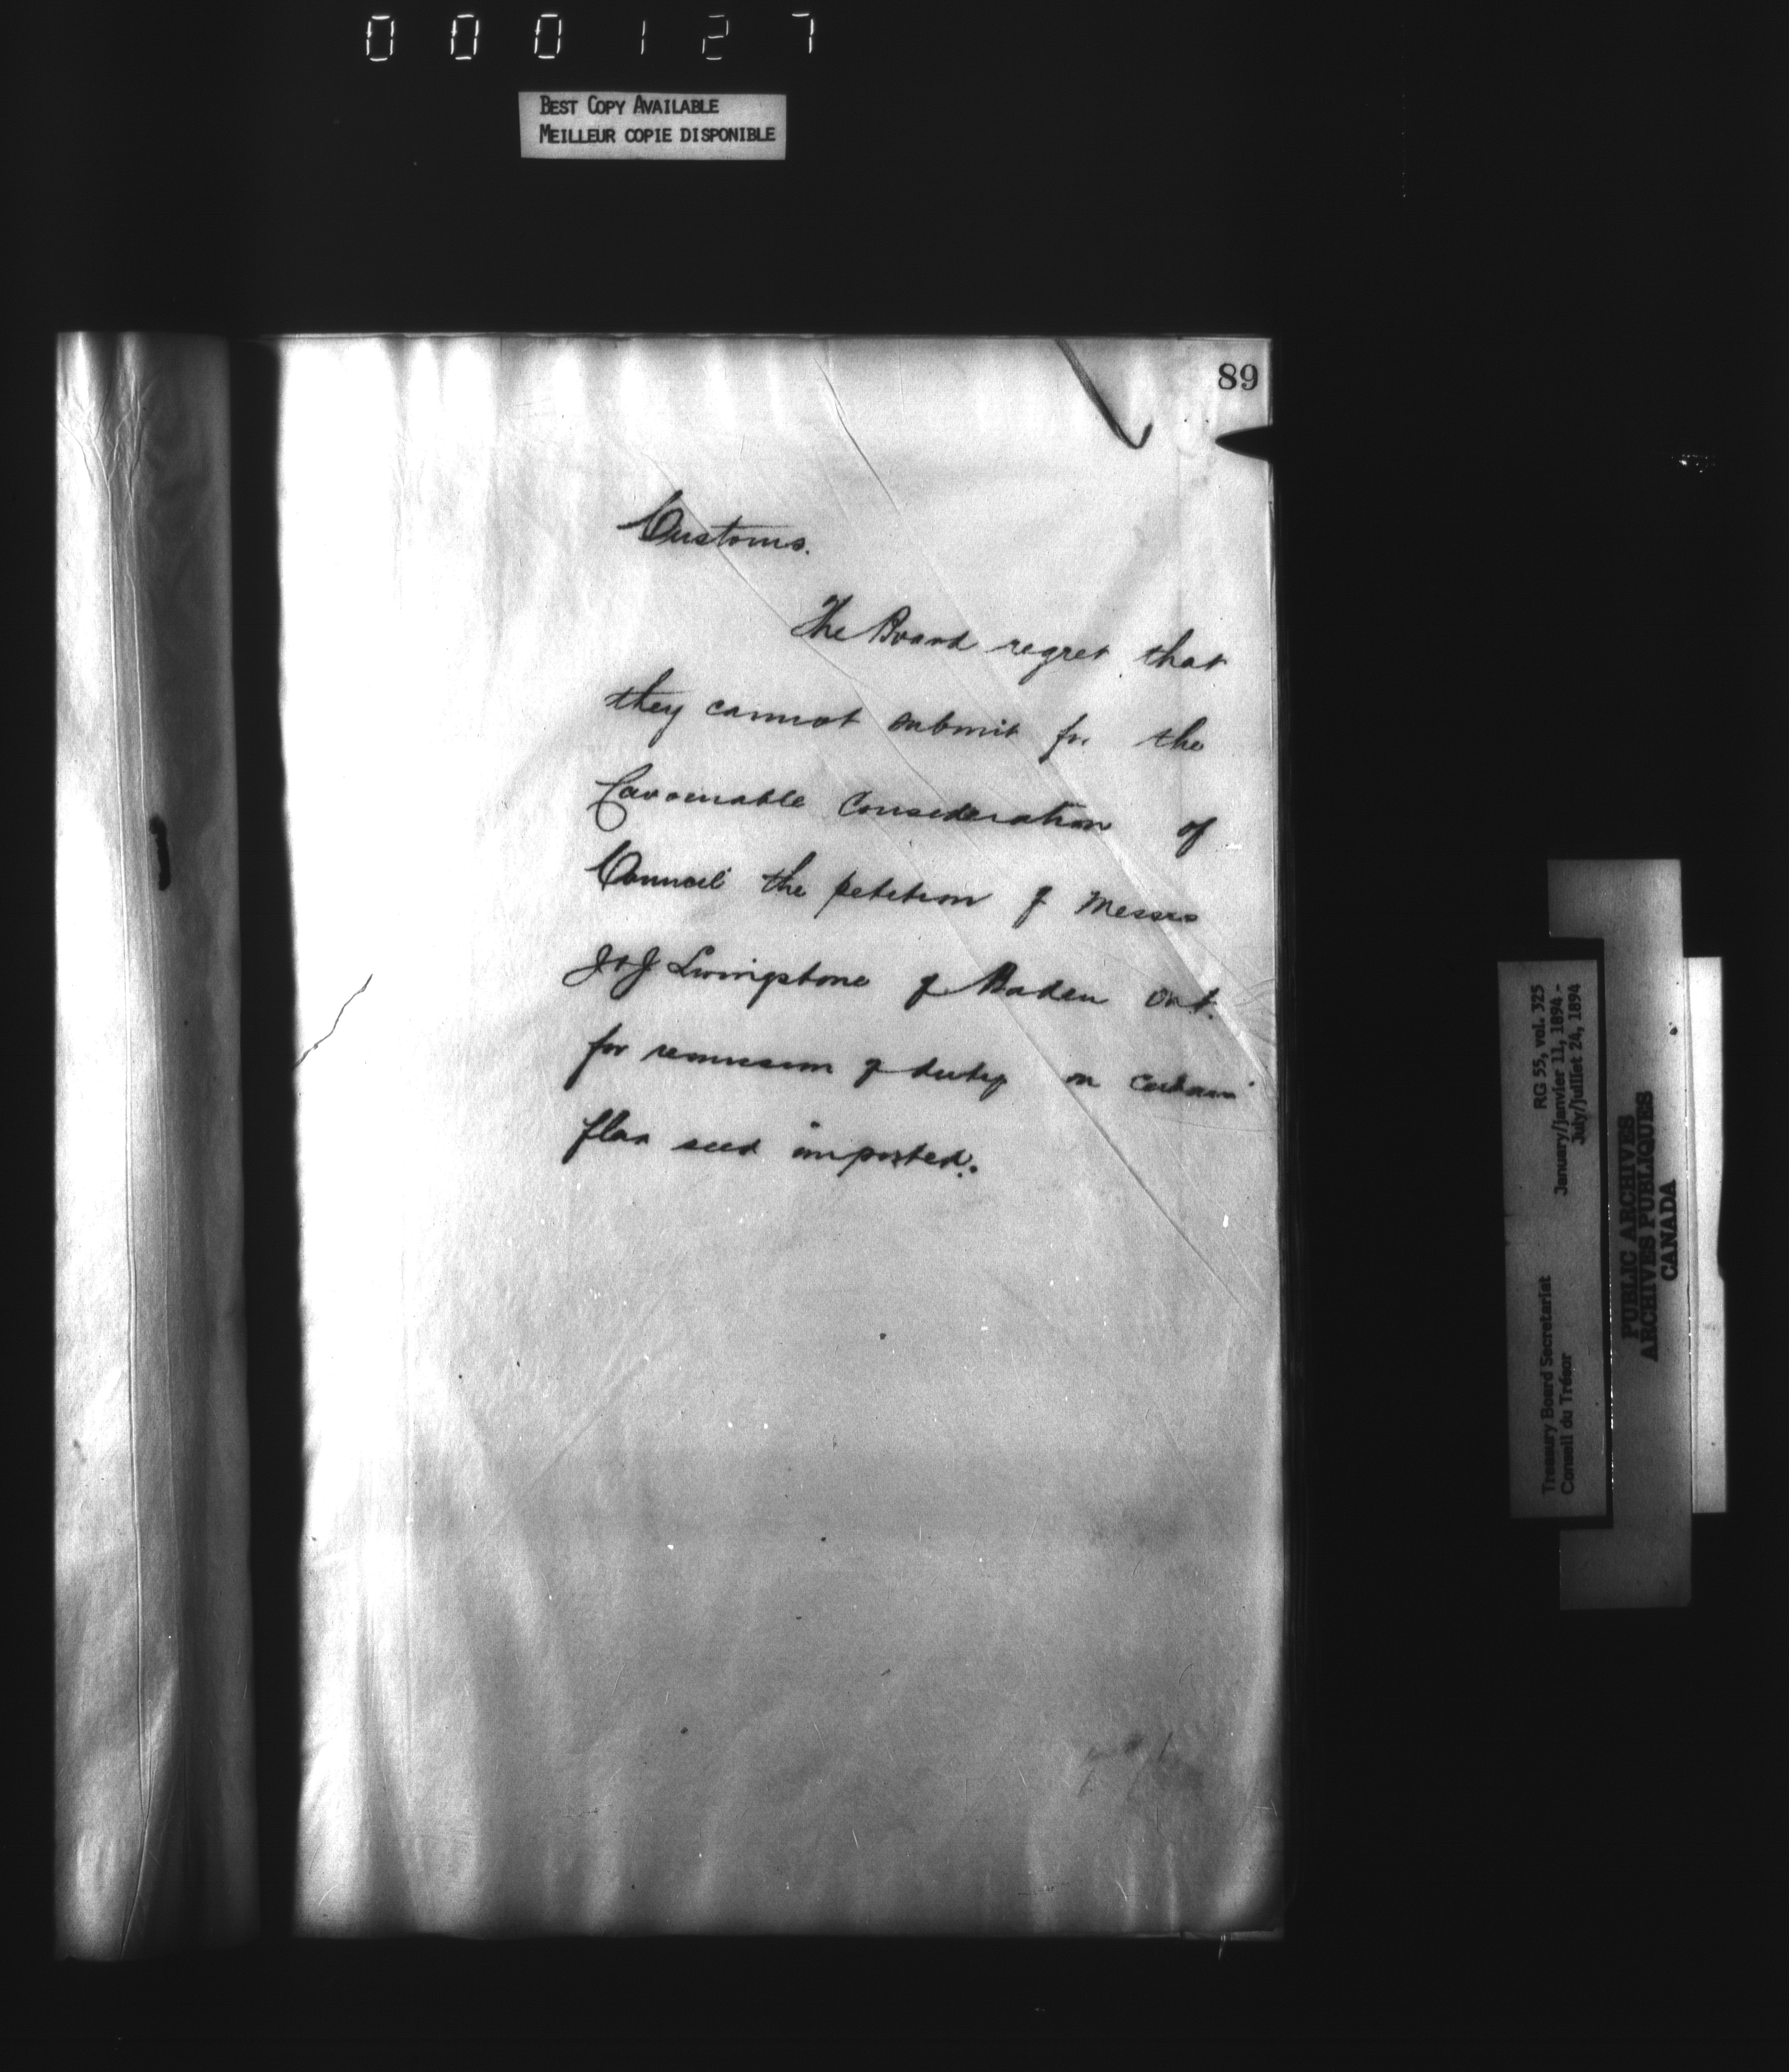 000127
BEST COPY AVAILABLE
MEILLEUR COPIE DISPONIBLE
89
Customs.
The Board regret that
they cannot submit for the
favourable consideration of
Council the petition of Messrs
J & J Livingstone of Baden Ont.
for remission of duty on certain
flax seed imported.
RG 55, vol. 325
January/janvier 11, 1894 -
July/juillet 24, 1894
Treasury Board Secretariat
Conseil du Trésor
PUBLIC ARCHIVES
ARCHIVES PUBLIQUES
CANADA